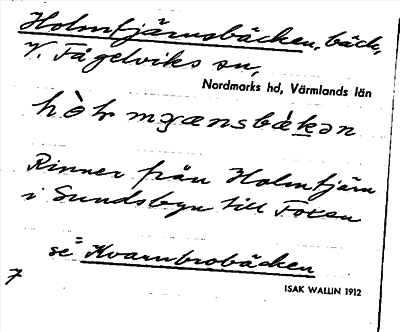 Holmtjärnsbäcken, bäck,
V. Fågelviks sn,
Nordmarks hd, Värmlands län
Rinner från Holmtjärn
i Sundsbyn till Foxen
se = Kvarnbrobäcken
7
ISAK WALLIN 1912